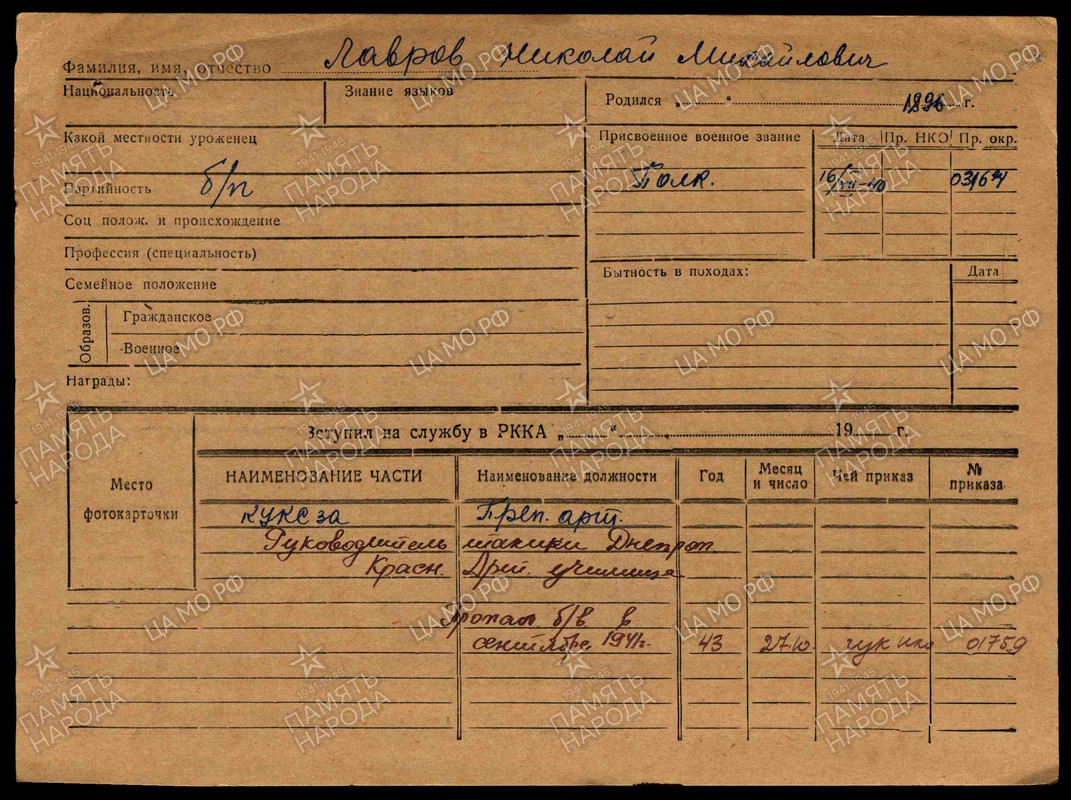 Фамилия, имя, отчество Лавров Николай Михайлович
Национальность
Знание языков
Родился „ “ 1896 г.
Какой местности уроженец
Партийность б/п
Соц полож. и происхождение
Профессия (специальность)
Семейное положение
Образов. Гражданское
Военное
Награды:
Присвоенное военное звание Дата Пр. НКО Пр. окр.
Полк. 16/VII-40 03164
Бытность в походах: Дата
Место
фотокарточки
Вступил на службу в РККА „ “ 19 г.
НАИМЕНОВАНИЕ ЧАСТИ Наименование должности Год Месяц и число Чей приказ № приказа
КУКС за Преп. арт.
Руководитель тактики Днепроп
Красн. Арт. училища
Пропал б/в в
сентябре 1941г. 43 27.10 гук нко 01759
ЦА МО РФ
1941-1945
ПАМЯТЬ
НАРОДА